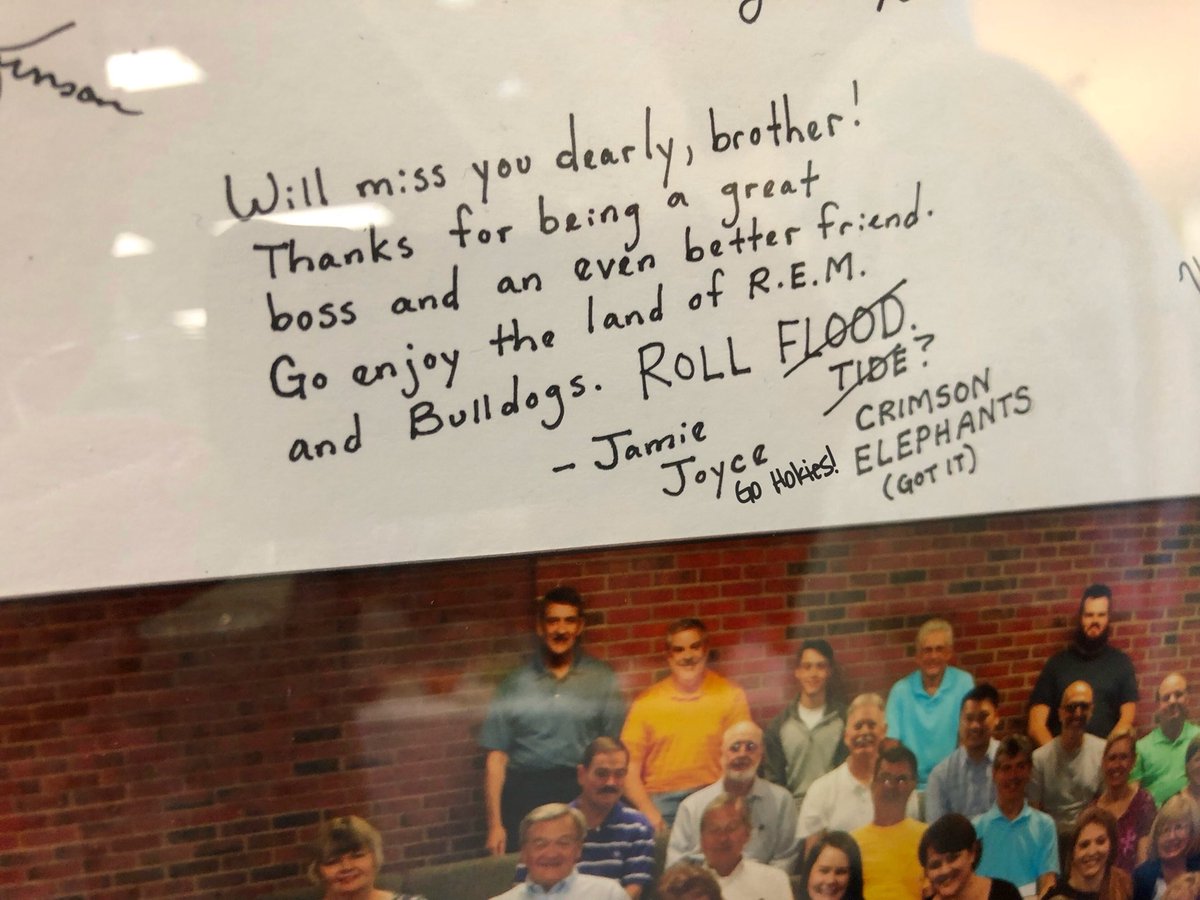 Will miss you dearly, brother!
Thanks for being a great
boss and an even better friend.
Go enjoy the land of R.E.M.
and Bulldogs. ROLL FLOOD.
TIDE?
CRIMSON
ELEPHANTS
(GOT IT)
- Jamie
Joyce
Go Hokies!